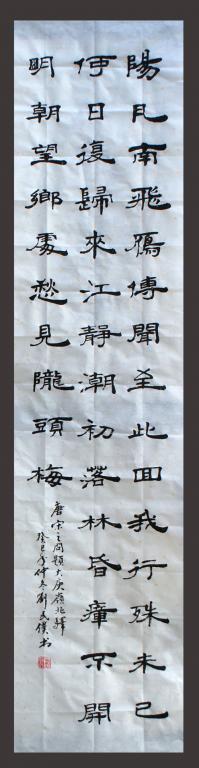 陽月南飛鴈傳聞至此回我行殊未已
何日復歸來江靜潮初落林昏瘴不開
明朝望鄉處愁見隴頭梅
唐宋之問題大庾嶺北驛
癸巳年仲冬劉書